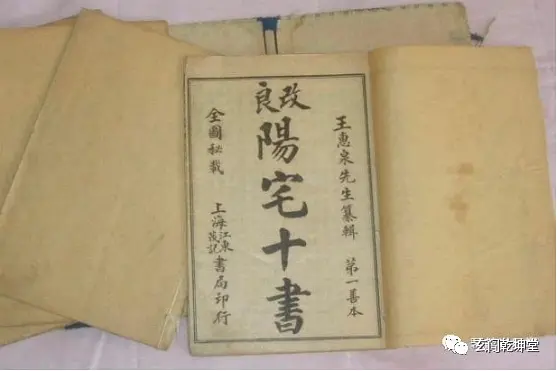 王惠泉先生纂輯 第一善本
改良
陽宅十書
全圖秘載
上海江東茂記書局印行
玄阔乾坤堂